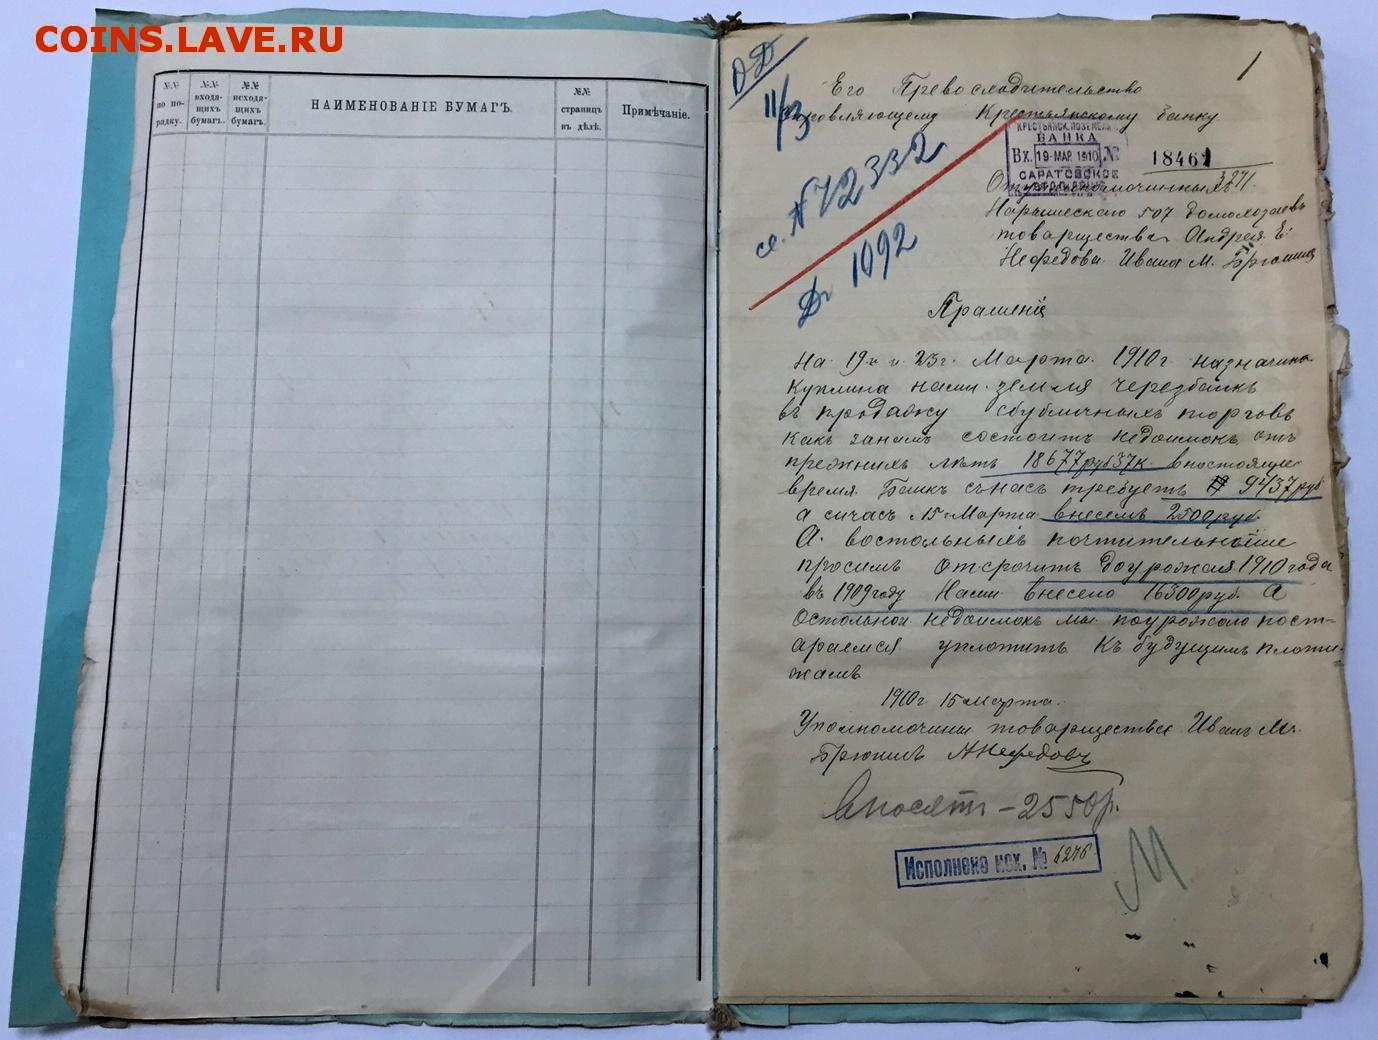 COINS.LAVE.RU
№№ по по- рядку.
№№ входя- щихъ бумагъ.
№№ исходя- щихъ бумагъ.
НАИМЕНОВАНІЕ БУМАГЪ.
№№ страницъ въ дѣлѣ.
Примѣчаніе.
1
ОД
11/3
Его Превосходительство
Крестьянскому банку
КРЕСТЬЯНСК. ПОЗЕМЕЛЬН.
БАНКА
Вх. 19 МАР. 1910 №
18461
САРАТОВСКОЕ
ОТДѢЛЕНІЕ
3271
св. №72332
Дѣ 1092
507 домохозаевъ
товарищества Андрея Е.
Нефедова Ивана М.
Прашеніе
На 19 и 23г. Марта 1910г. назначина
куплина нами земля черезбанкъ
въ продажу спубличныхъ торговъ
какъ занамъ состоитъ недоимокъ отъ
прежнихъ лѣтъ 18677руб37к. вностоящие
время Банкъ снасъ требуетъ 9437руб
а сичасъ 15 Марта внесемъ 2500руб.
А востольныхъ почтительнейше
просимъ отсрочить доурожая 1910 года
въ 1909году Нами внесено 16300руб. А
Остольной недоимокъ мы поурожаю пост-
араемся уплотить Къ будущимъ плоти-
жамъ
1910г 15 Марта.
Уполномочины товарищества Иванъ М.
А Нефедовъ
Вносятъ – 2550р.
Исполнено исх. № 6276
М